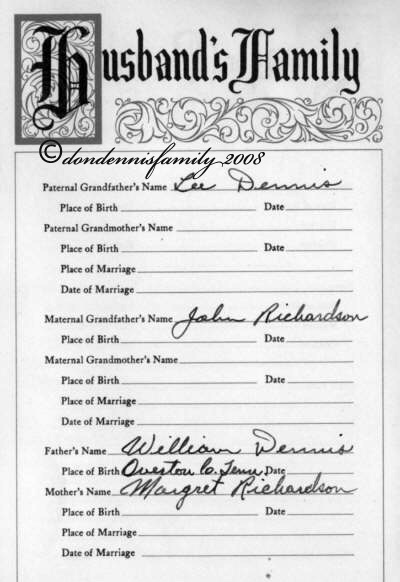 Husband's Family
© dondennisfamily 2008
Paternal Grandfather's Name Lee Dennis
Place of Birth Date
Paternal Grandmother's Name
Place of Birth Date
Place of Marriage
Date of Marriage
Maternal Grandfather's Name John Richardson
Place of Birth Date
Maternal Grandmother's Name
Place of Birth Date
Place of Marriage
Date of Marriage
Father's Name William Dennis
Place of Birth Overton Co. Tenn. Date
Mother's Name Margret Richardson
Place of Birth Date
Place of Marriage
Date of Marriage